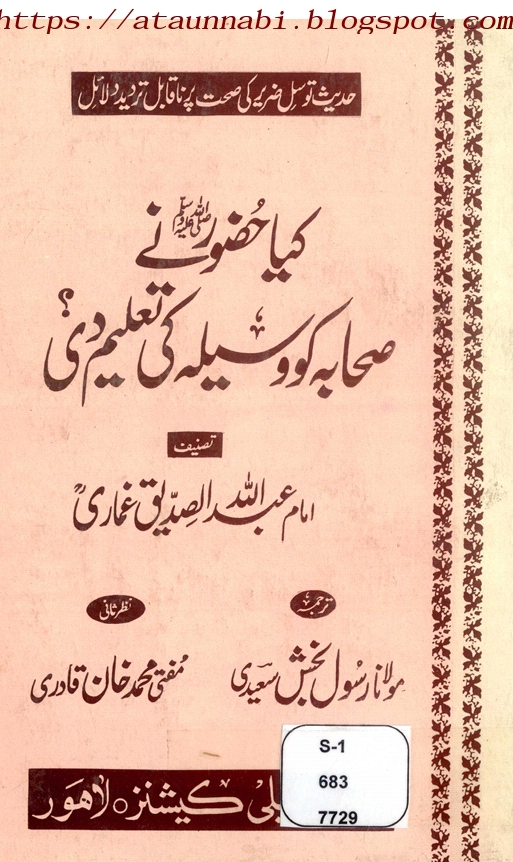 https://ataunnabi.blogspot.com
حدیث توسل ضریر کی صحت پر ناقابل تردید دلائل
کیا حضور ﷺ نے
صحابہ کو وسیلہ کی تعلیم دی؟
تصنیف
امام عبداللہ الصدیق غماری
ترجمہ
نظر ثانی
مولانا رسول بخش سعیدی
مفتی محمد خان قادری
S-1
683
7729
کیشنز ○ لاہور